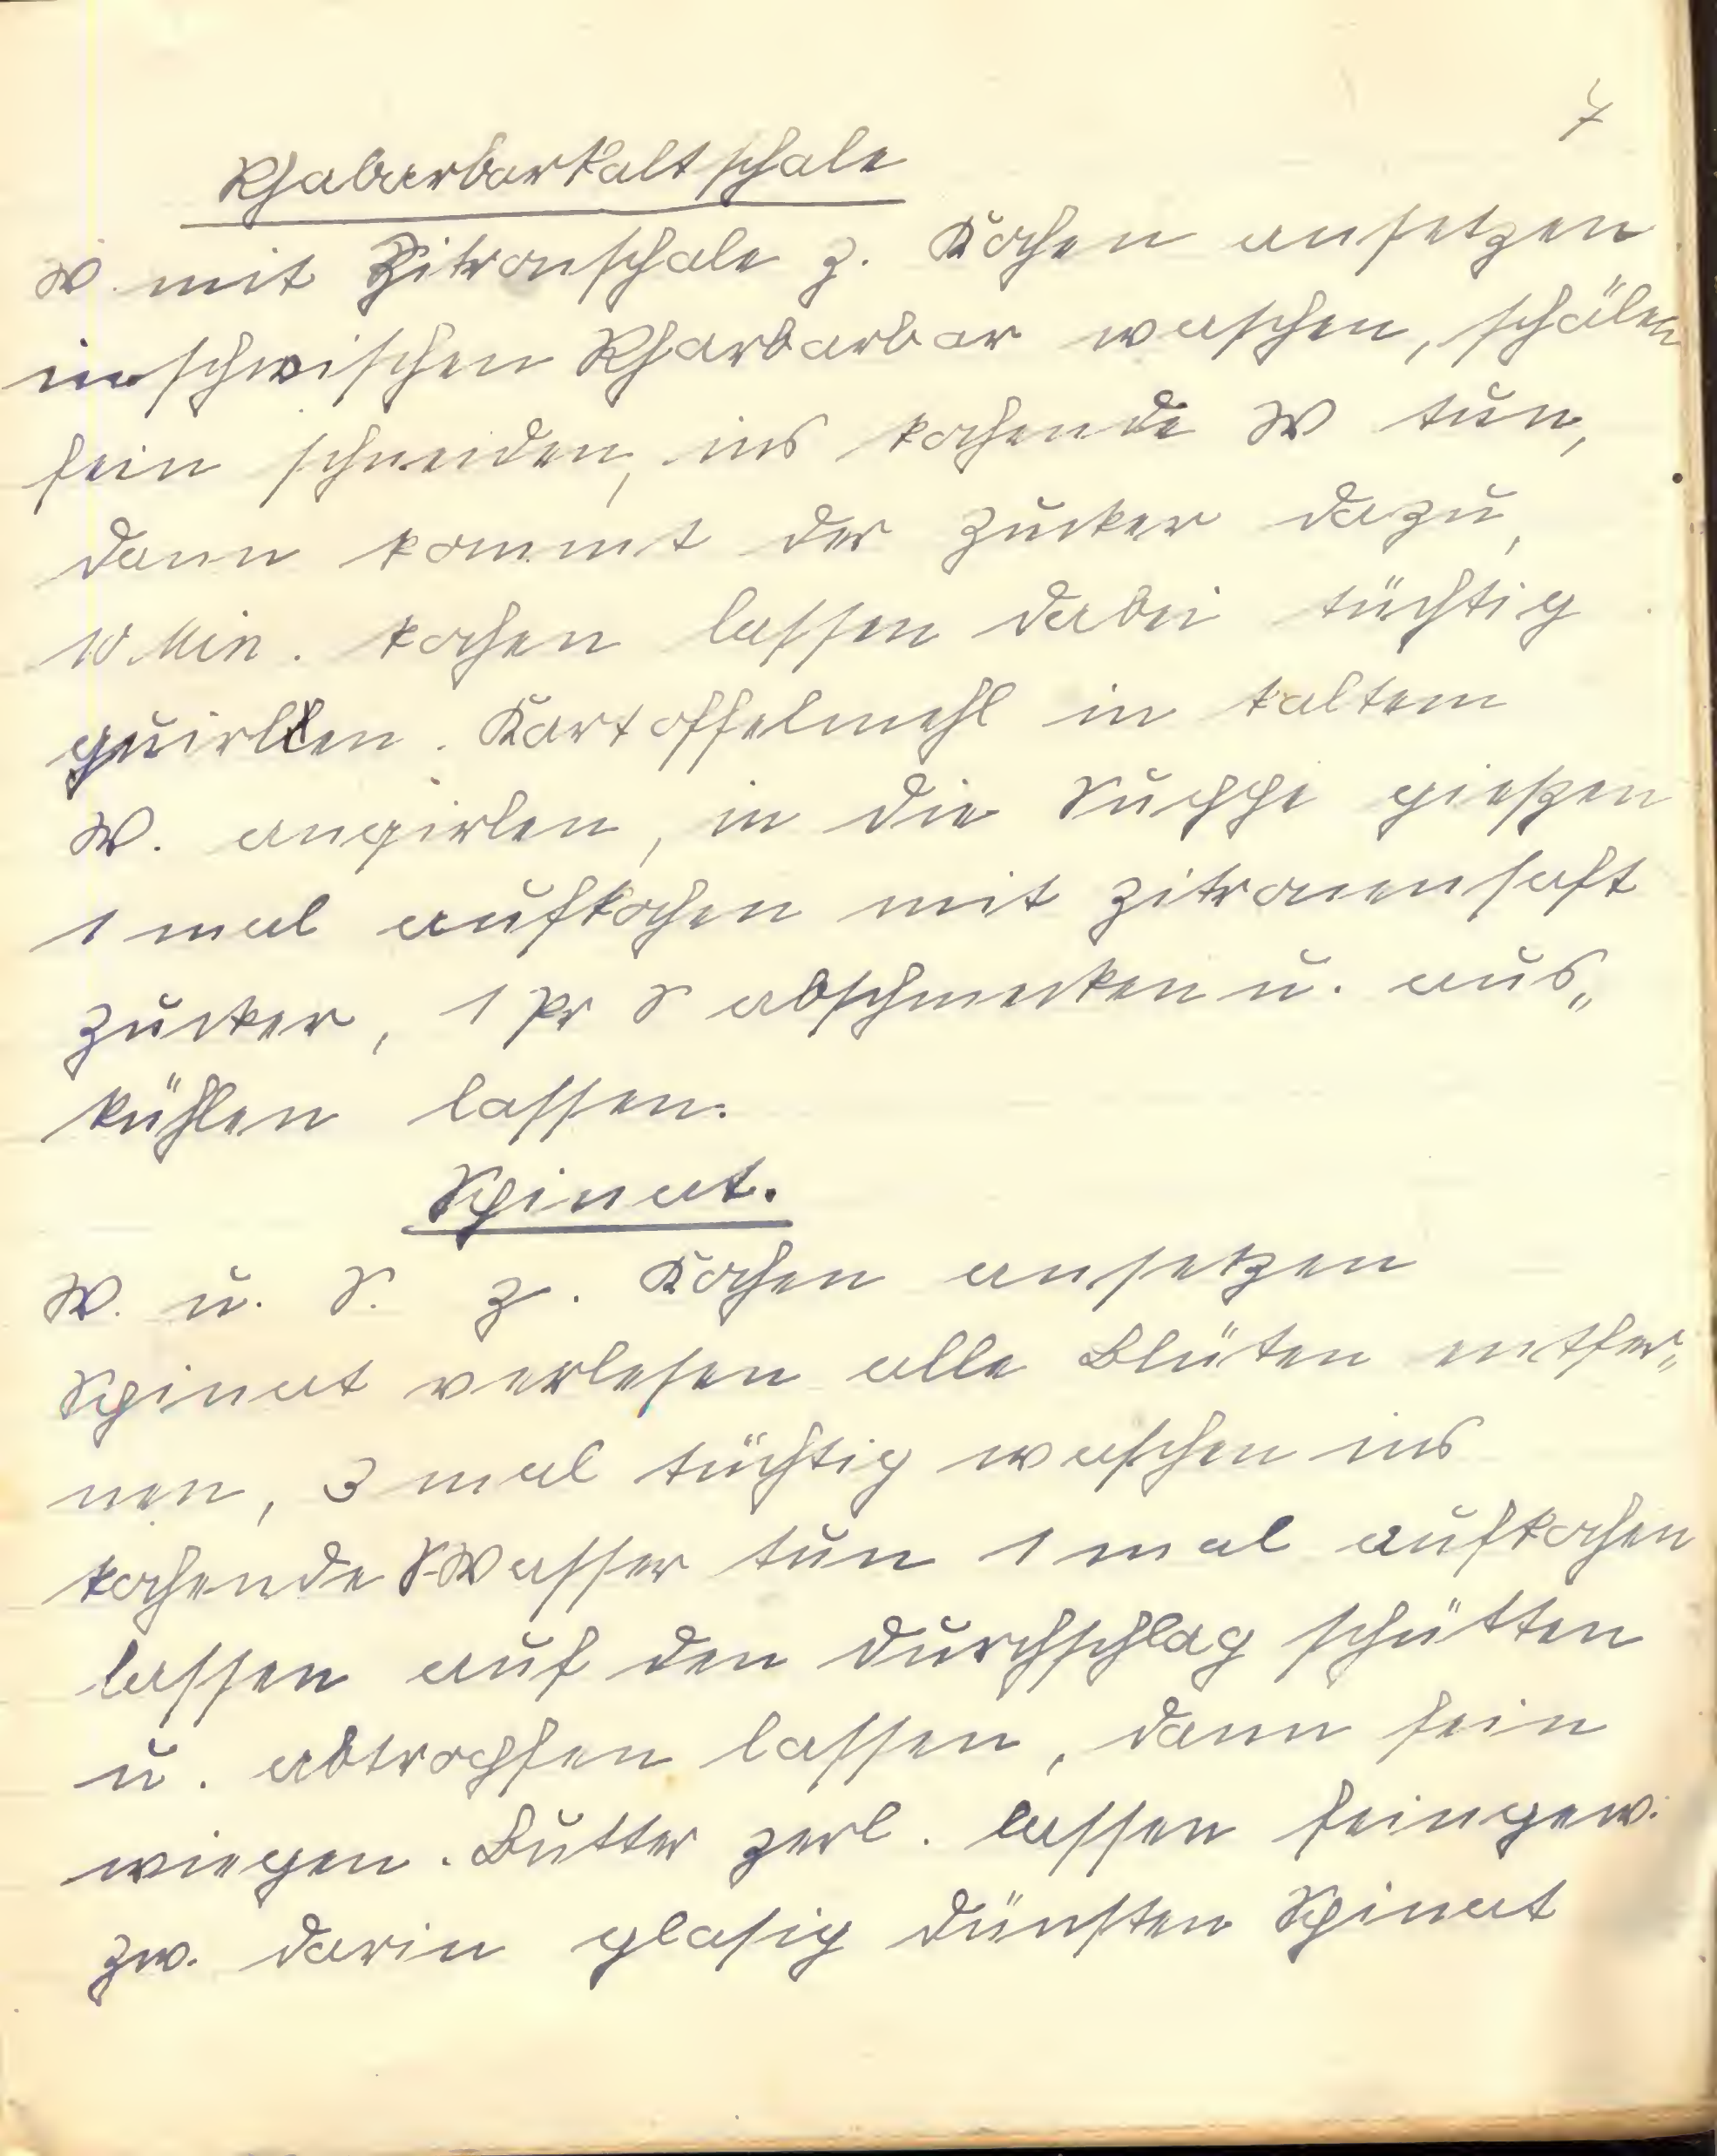 7
Rhabarbarkaltschale
W. mit Zitronschale z. Kochen ansetzen
inschwischen Rharbarbar waschen, schälen
fein schneiden, ins kochende W tun,
dann kommt der Zucker dazu,
10 Min. kochen lassen dabei tüchtig
quirllen. Kartoffelmehl in kaltem
W. anqirlen, in die Suppe gießen
1 mal aufkochen mit Zitronensaft
Zucker, 1 Pr S abschmecken u. aus„
kühlen lassen.
Spinat.
W. u. S. z. Kochen ansetzen
Spinat verlesen alle Blüten entfer„
nen, 3 mal tüchtig waschen ins
kochende S-Wasser tun 1 mal aufkochen
lassen auf den Durchschlag schütten
u. abtropfen lassen, dann fein
wiegen. Butter zerl. lassen feingew.
zw. darin glasig dünsten Spinat